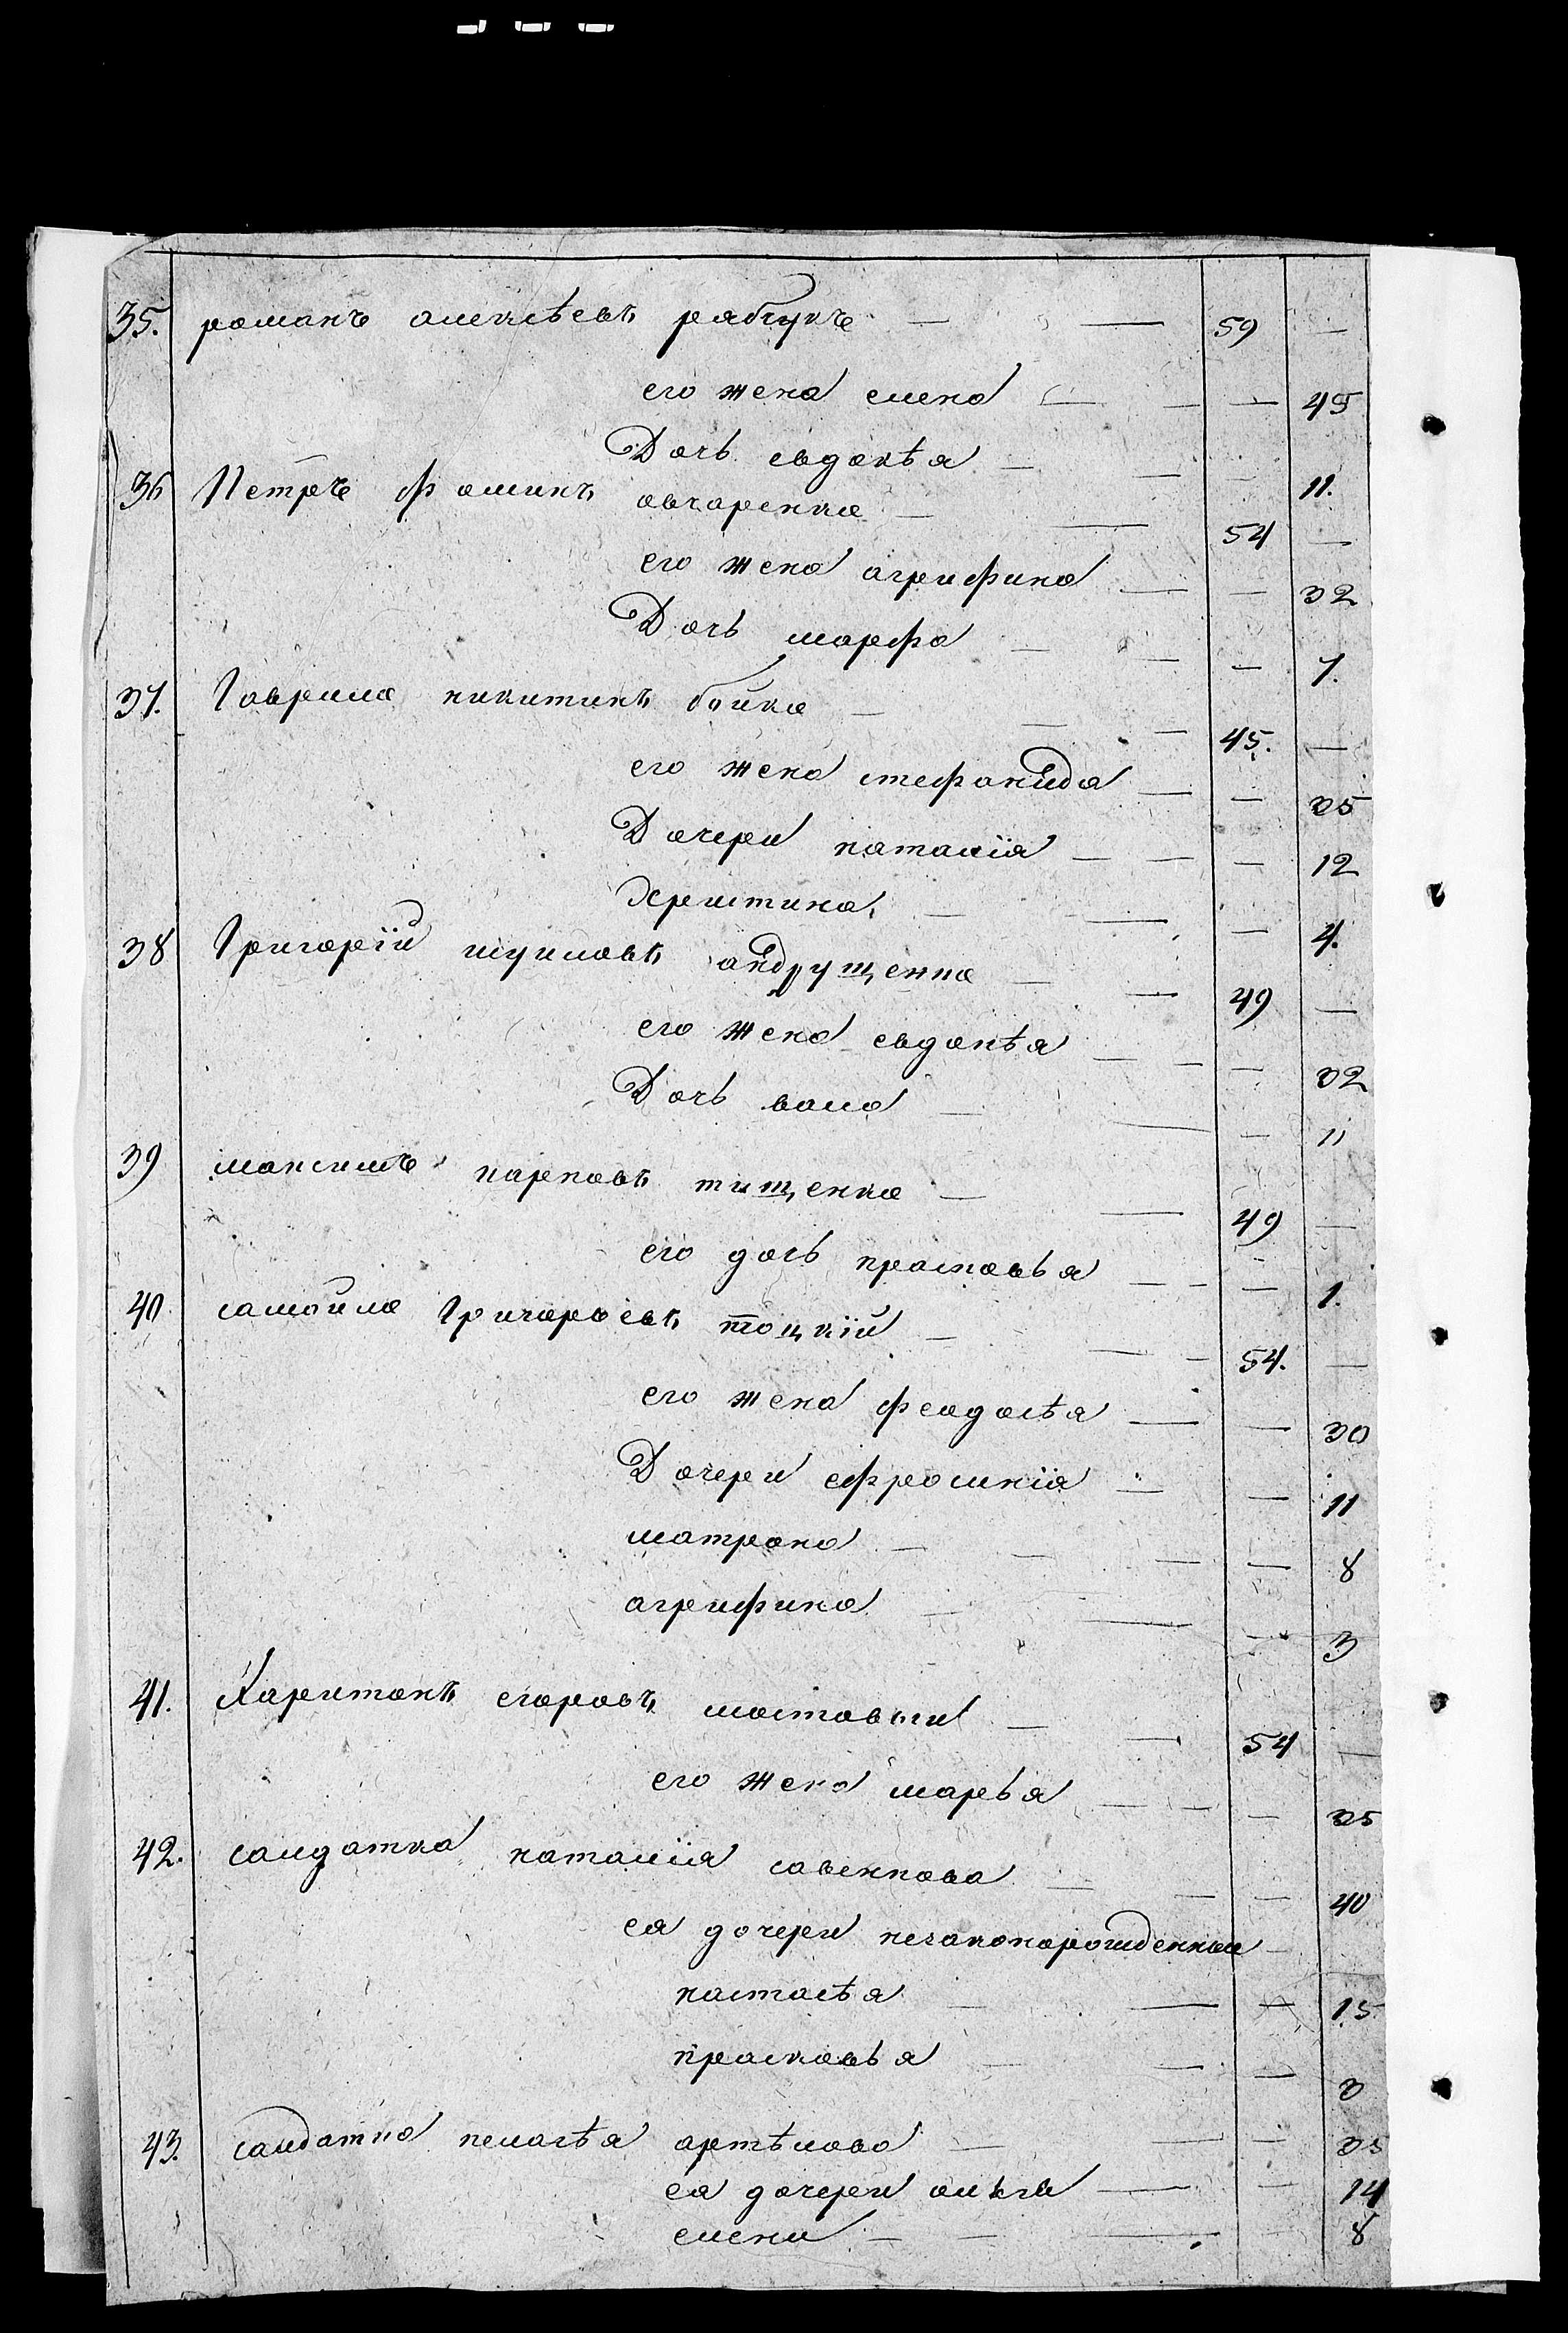 35. романъ алексѣевъ рябчукъ — — 59 —
его жена елена — — — 45
Дочь евдокѣя — — — 11.
36 Петръ фоминъ овчаренко — — 54 —
его жена агрифина — — 32
Дочь марфа — — — 7.
37. Гаврила никитинъ бойко — — — 45. —
его жена стефанида — — 35
Дочери наталія — — — 12
Христина, — — — 4.
38 Григорій шуиловъ андрущенко — — 49 —
его жена евдокѣя — — — 32
Дочь васа — — — 11
39 максимъ карповъ тищенко — — 49 —
его дочь прасковья — — — 1.
40 самойла Григорьевъ тоцкій — — — 54. —
его жена феодосѣя — — 30
Дочери ефросинія — — 11
матрона — — — — 8
агрифина — — — 3
41. Харитонъ егоровъ мостовый — — 54 —
его жена марья — — — 35
42. салдатка наталія савенкова — — — 40
ея дочери незаконорожденные —
настасѣя — — — 15
прасковья — — — 3
43. салдатка пелагѣя артѣмова — — — 35
ея дочери ольга — — 14
елена — — — — 8